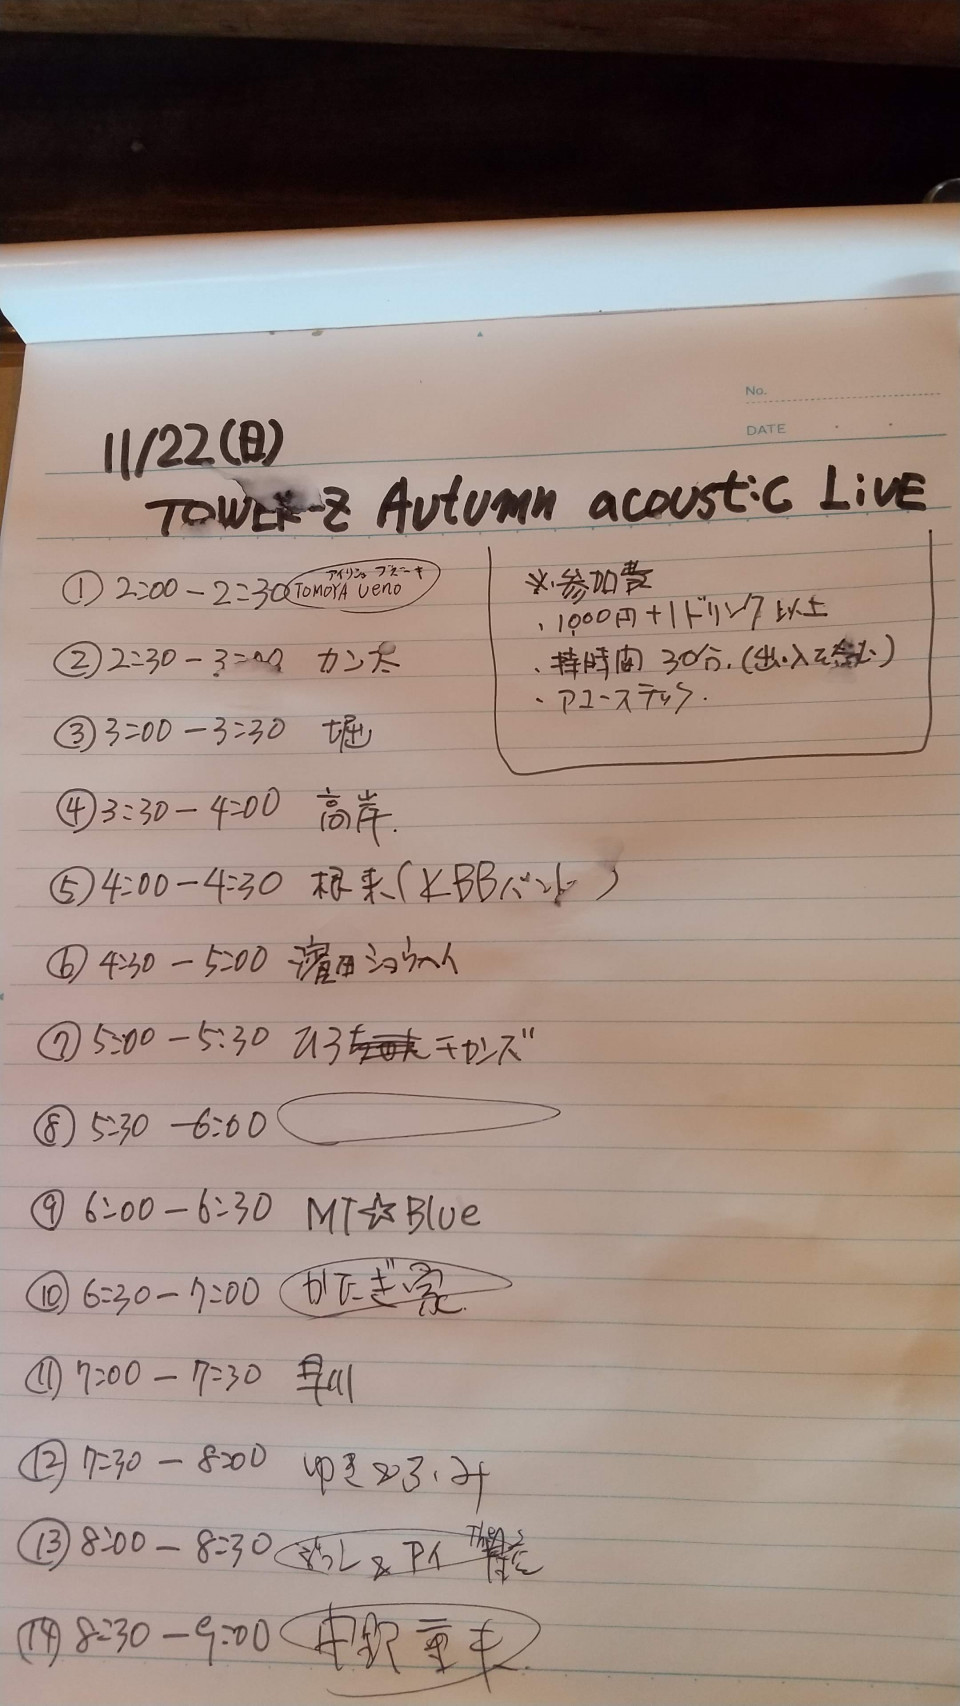 No.
DATE
11/22(日)
TOWER-Z Autumn acoustic LiVE
① 2:00 - 2:30 TOMOYA Ueno
② 2:30 - 3:00 カン太
③ 3:00 - 3:30 堀
④ 3:30 - 4:00 高岸.
⑤ 4:00 - 4:30 根来(KBBバンド)
⑥ 4:30 - 5:00 濱田ショウヘイ
⑦ 5:00 - 5:30 ひろチカンズ
⑧ 5:30 - 6:00
⑨ 6:00 - 6:30 MT☆Blue
⑩ 6:30 - 7:00 かたぎ家
⑪ 7:00 - 7:30 早川
⑫ 7:30 - 8:00 ゆき&ふみ
⑬ 8:00 - 8:30 & アイ
⑭ 8:30 - 9:00
※参加費
・1000円+1ドリンク以上
・持時間 30分.(出入を含む)
・アコースティック.